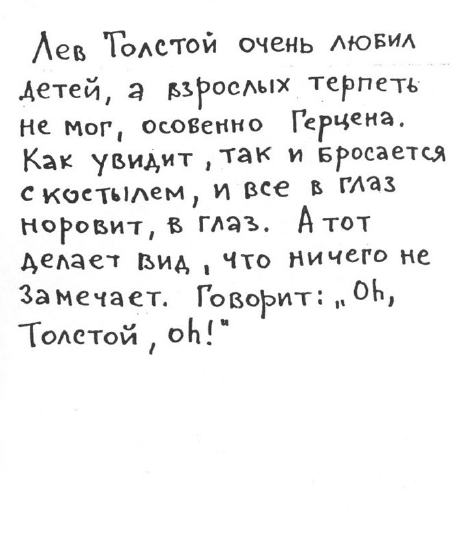 Лев Толстой очень любил
детей, а взрослых терпеть
не мог, особенно Герцена.
Как увидит, так и бросается
с костылем, и все в глаз
норовит, в глаз. А тот
делает вид, что ничего не
замечает. Говорит: „Oh,
Толстой, oh!"